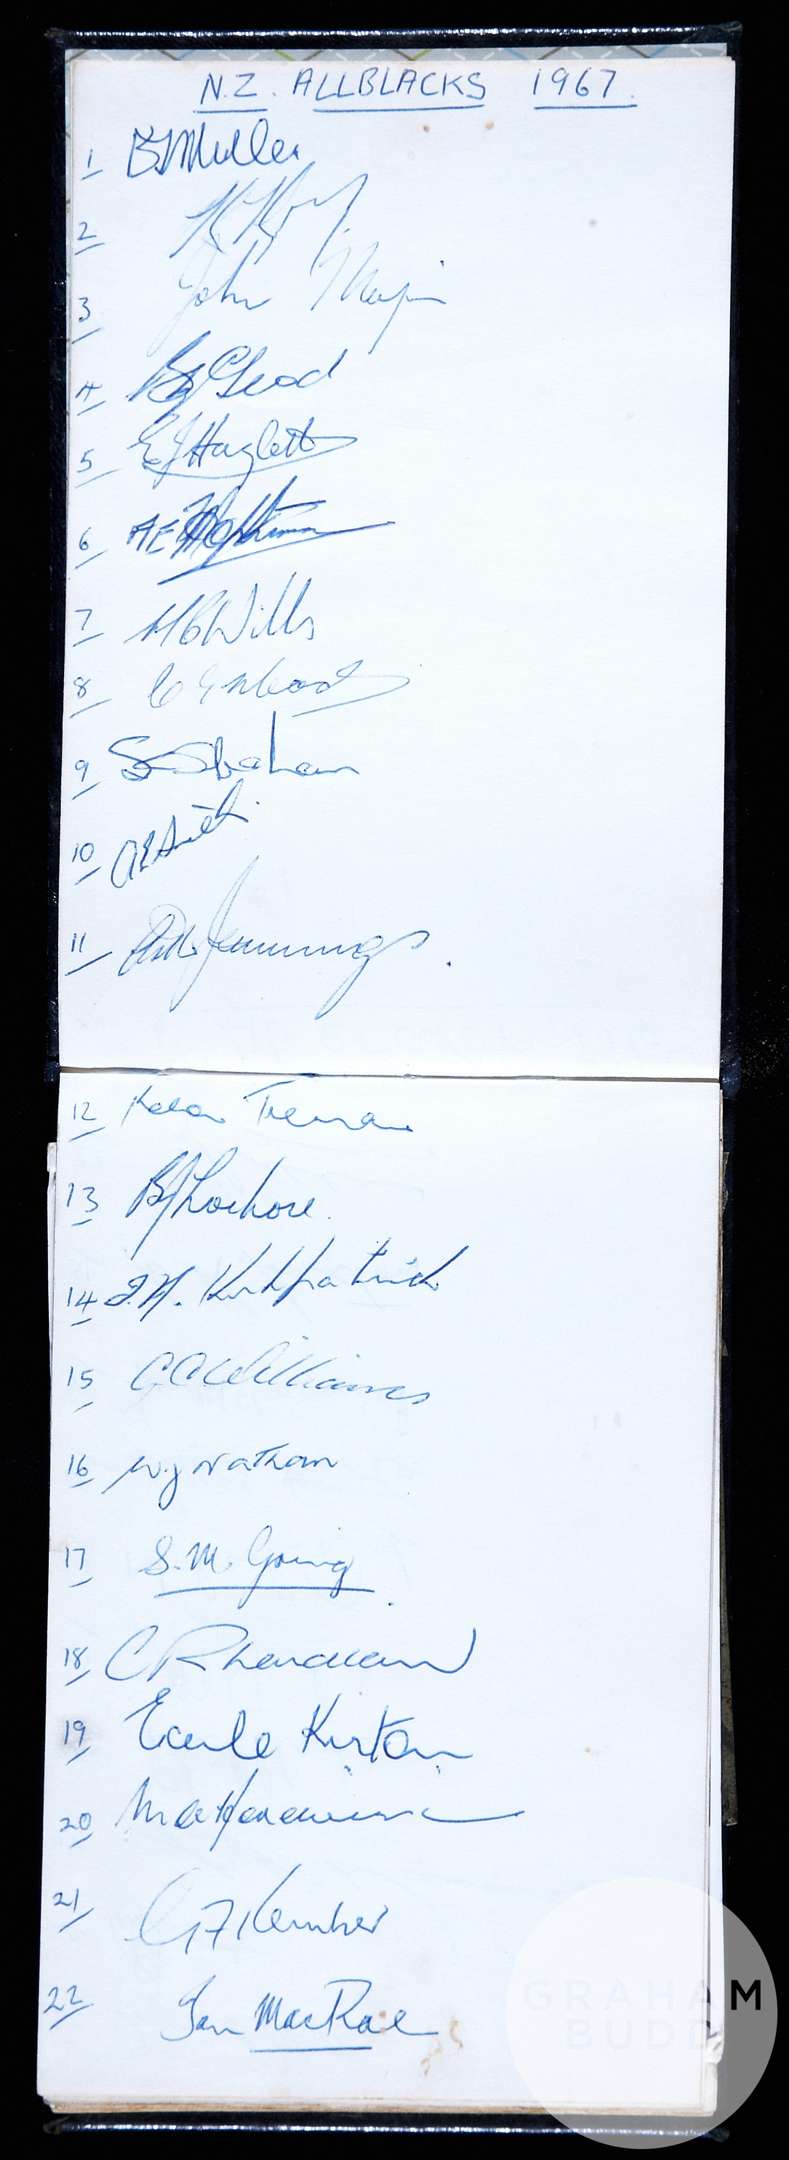 N.Z. ALLBLACKS 1967.
1 B L Muller
2
3 John Major
4
5 E J Hazlett
6 A E Hopkinson
7 M C Wills
8 C E Meads
9 S C Strahan
10 A E Smith
11 A G Jennings.
12 Kelvin Tremain
13 B J Lochore.
14 I.A. Kirkpatrick
15 G C Williams
16 W.J Nathan
17 S.M. Going
18 C R Laidlaw
19 Earle Kirton
20
21 G F Kember
22 Ian MacRae
GRAHAM
BUDD